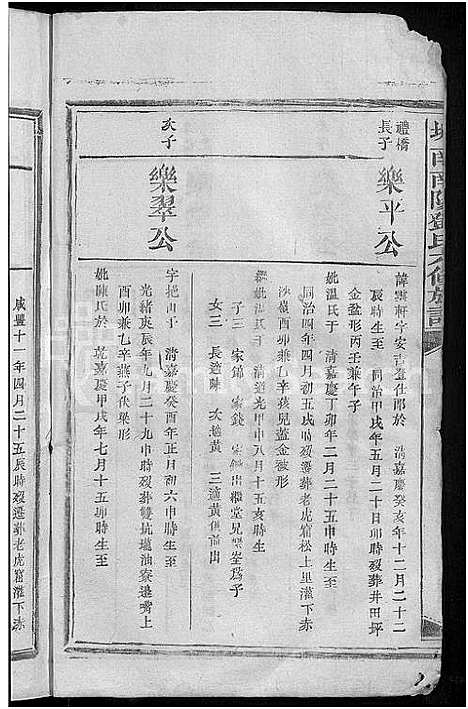 南陽鄧氏六修族譜
禮橋
長子
樂平公
諱 軒字安吉登仕郎於 清嘉慶癸亥年十二月二十二
辰時生至 同治甲戌年五月二十日卯時歿葬井田坪
金盆形丙壬兼午子
妣溫氏於 清嘉慶丁卯年二月二十五申時生至
同治四年四月初五戌時歿遷葬老虎窟松上里灌下赤
沙嶺酉卯兼乙辛 兒藍金被形
继妣溫氏于 清道光甲申年八月十五亥時生
子三 家錦 家錢 家 出繼堂兄樂 為子
女三 長適陳 次適黃 三適黃俱前出
次子
樂翠公
字 于 清嘉慶癸酉年正月初六申時生至
光緒庚辰年九月二十九申時歿葬雙坑壠油寮邊嘴上
酉卯兼乙辛燕子伏梁形
妣陳氏於 乾嘉慶甲戌年七月十五卯時生至
咸豐十一年四月二十五辰時歿遷葬老虎窟灌下赤